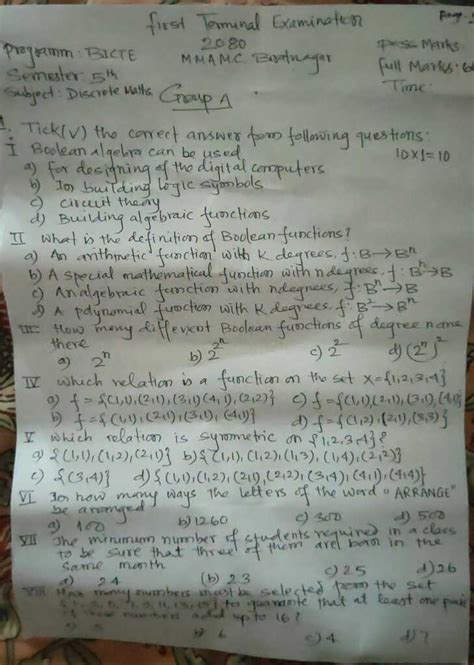 First Terminal Examination
2080
Programm: BICTE
MMAMC Biratnagar
Pass Marks
Semester: 5th
Full Marks:
Subject: Discrete Maths
Time:
Group A
1. Tick(√) the correct answer from following questions:
10×1=10
I Boolean algebra can be used
a) for designing of the digital computers
b) In building logic symbols
c) circuit theory
d) Building algebraic functions
II What is the definition of Boolean functions?
a) An arithmetic function with K degrees, f: B→Bⁿ
b) A special mathematical function with n degrees, f: Bⁿ→B
c) An algebraic function with n degrees, f: Bⁿ→B
d) A polynomial function with K degrees, f: B²→Bⁿ
III How many different Boolean functions of degree n are
there
a) 2ⁿ b) 2^2ⁿ c) 2² d) (2ⁿ)²
IV Which relation is a function on the set X={1,2,3,4}
a) f = {(1,1),(2,1),(3,1)(4,1),(2,2)} c) f={(1,1)(2,1),(3,1),(4,1)}
b) f = {(1,1),(2,1)(3,1), (4,1)} d) f={(1,2),(2,1),(3,3)}
V Which relation is symetric on {1,2,3,4}?
a) {(1,1),(1,2),(2,1)} b) {(1,1),(1,2),(1,3),(1,4),(2,2)}
c) {(3,4)} d) {(1,1),(1,2),(2,1),(2,2),(3,4),(4,1),(4,4)}
VI In how many ways the letters of the word "ARRANGE"
be arranged
a) 100 b) 1260 c) 300 d) 500
VII The minimum number of students required in a class
to be sure that three of them are born in the
same month
a) 24 (b) 23 c) 25 d) 26
VIII How many numbers must be selected from the set
to guarantee that at least one pair
numbers add up to 16?
b) 6 c) 4 d) 7